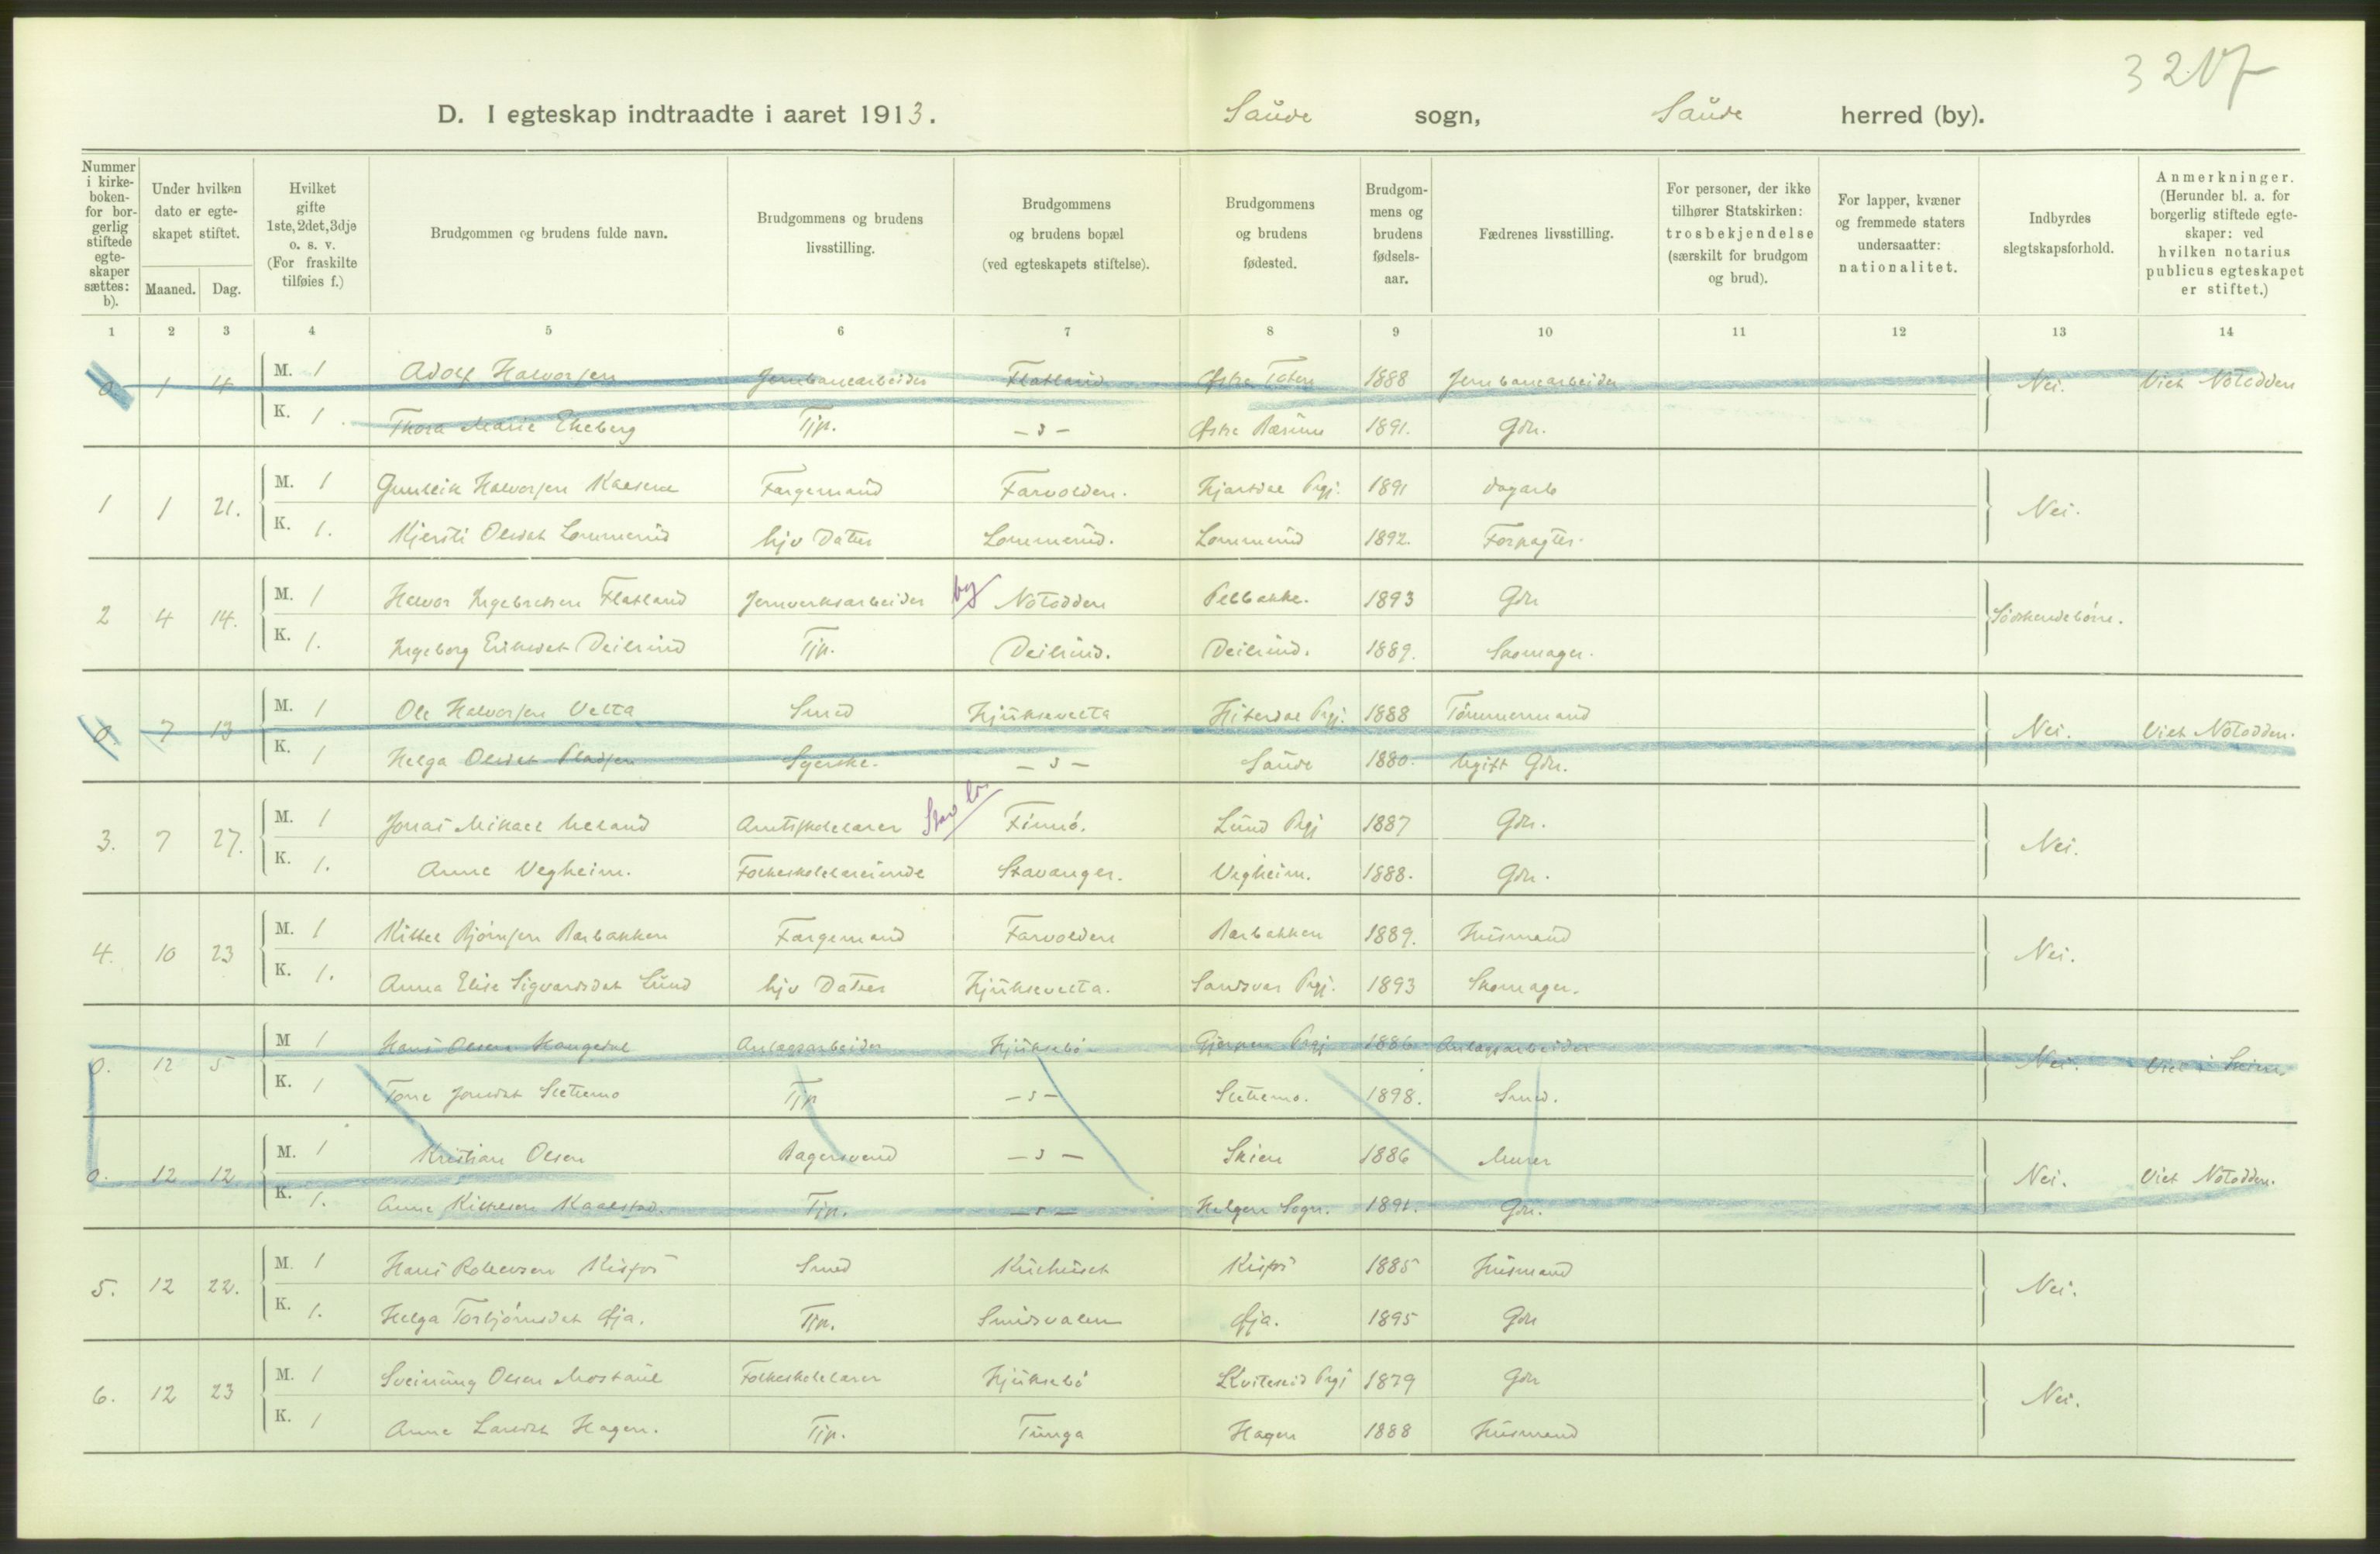 3 217
D. I egteskap indtraadte i aaret 1913. Saude sogn, Saude herred (by).
Nummer i kirke-boken- for bor-gerlig stiftede egte-skaper sættes: b).
Under hvilken dato er egte-skapet stiftet.
Maaned. Dag.
Hvilket gifte 1ste, 2det, 3dje o. s. v. (For fraskilte tilføies f.)
Brudgommen og brudens fulde navn.
Brudgommens og brudens livsstilling.
Brudgommens og brudens bopæl (ved egteskapets stiftelse).
Brudgommens og brudens fødested.
Brudgom-mens og brudens fødsels-aar.
Fædrenes livsstilling.
For personer, der ikke tilhører Statskirken: trosbekjendelse (særskilt for brudgom og brud).
For lapper, kvæner og fremmede staters undersaatter: nationalitet.
Indbyrdes slegtskapsforhold.
Anmerkninger. (Herunder bl. a. for borgerlig stiftede egte-skaper: ved hvilken notarius publicus egteskapet er stiftet.)
1 2 3 4 5 6 7 8 9 10 11 12 13 14
0. 1 4 M. 1 Adolf Halvorsen Jernbanearbeider Flatland Østre Toten 1888 Jernbanearbeider Nei. Viet Notodden
K. 1. Thora Marie Ekeberg Tjp. — s — Østre Bærum 1891. Gdr.
1 1 21. M. 1 Gunleik Halvorsen Kaasene Fargemand Farvolden. Hjartdal Prgj. 1891 dagarb Nei.
K. 1. Kjersti Olsdat Lommerud hjv Datter Lommerud. Lommerud 1892. Forpagter.
2 4 14. M. 1 Halvor Ingebretsen Flatland Jernverksarbeider by Notodden Pelbakke. 1893 Gdr Södskendebörn.
K. 1. Ingeborg Eriksdat Deilrud Tjp. Deilrud. Deilrud. 1889. Skomager.
0. 7 13 M. 1 Ole Halvorsen Velta Smed Hjuksevelta Hiterdal Prgj. 1888 Tömmermand Nei. Viet Notodden.
K. 1 Helga Olsdat Pladsen Syerske. — s — Saude 1880. Ugift Gdr.
3. 7 27. M. 1 Jonas Mikael Ueland Amtsskolelærer Finnö. Lund Prgj 1887 Gdr. Nei.
K. 1. Anne Vegheim. Folkeskolelærerinde Stavanger. Vegheim. 1888. Gdr.
4. 10 23 M. 1 Kittel Björnsen Barbakken Fargemand Farvolden Barbakken 1889. Husmand Nei.
K. 1. Anna Elise Sigvardsdat Lund hjv Datter Hjuksevelta. Sandsvær Prgj. 1893 Skomager.
0. 12 5 M 1 Hans Olsen Haugedal Anlægsarbeider Hjuksebö Gjerpen Prgj 1886 Anlægsarbeider Nei. Viet i
K. 1 Tone Jonsdat Sletemo Tjp — s — Sletemo. 1898. Smed.
0. 12 12 M. 1 Kristian Olsen Bagersvend — s — Skien 1886 Murer Nei. Viet Notodden.
K. 1. Anne Kittelsen Kaalstad. Tjp. — s — Helgen Sogn. 1891. Gdr.
5. 12 22. M. 1 Hans Rollevsen Kisfos Smed Kisfos 1885 Husmand Nei.
K. 1. Helga Torbjörnsdat Øja. Tjp. Smidsvalen Øja. 1895 Gdr
6. 12 23 M. 1 Sveinung Olsen Mostaul Folkeskolelærer Hjuksebö Kviteseid Prgj 1879 Gdr Nei.
K. 1 Anne Larsdat Hagen. Tjp. Tunga Hagen 1888 Husmand